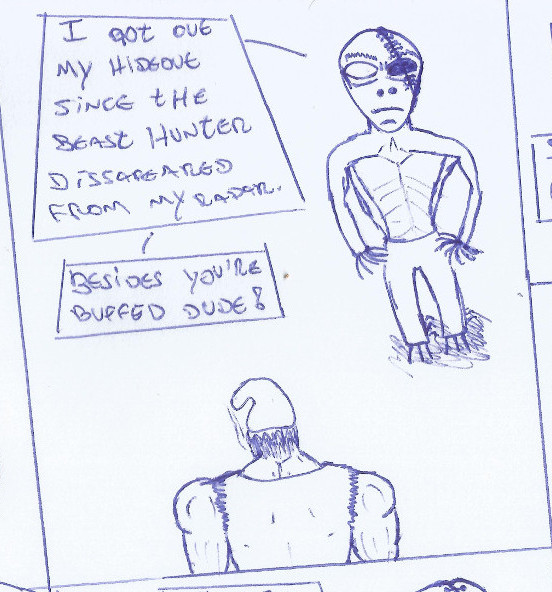 I GOT OUt
MY HiDEOUt
SiNCE tHE
BEASt HUNTER
DiSSAPEARED
FROM MY RADAR.
BESiDES YOU'RE
BUFFED DUDE!